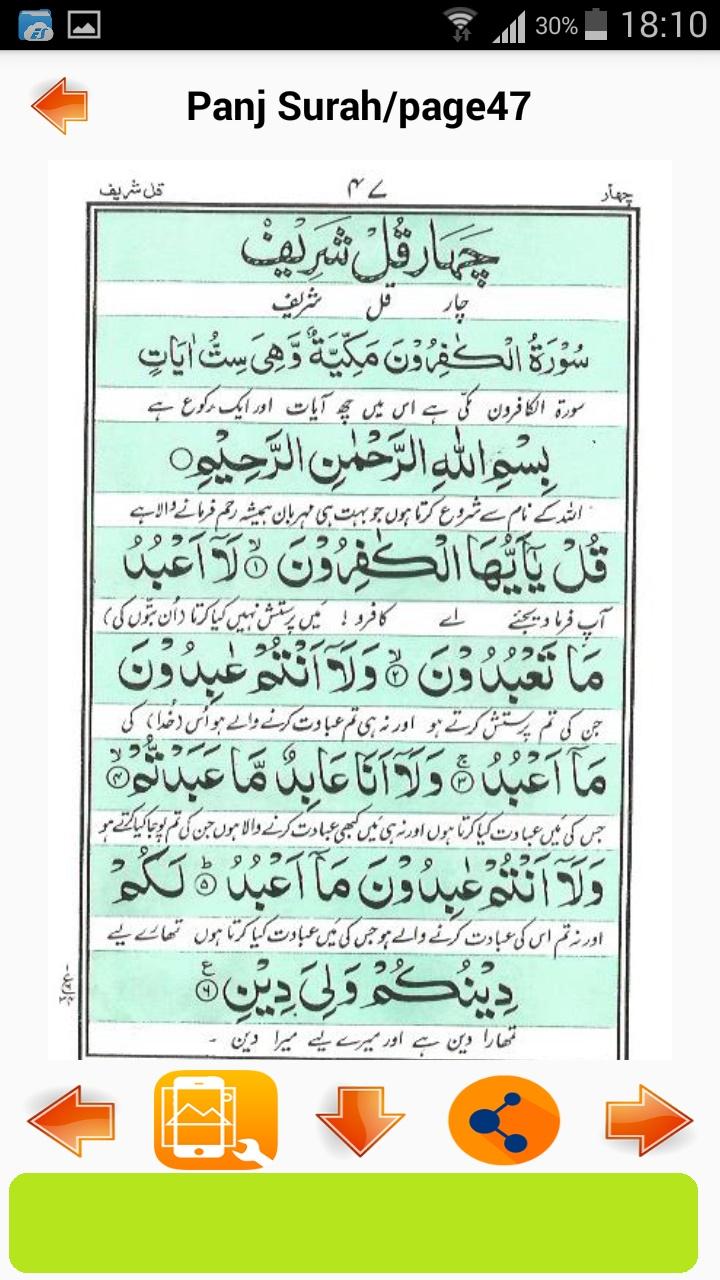 30% 18:10
Panj Surah/page47
چهار ۴۷ قل شریف
چَهَار قُلْ شَرِيْفْ
چار قل شریف
سُوْرَةُ الْكٰفِرُوْنَ مَكِّيَّةٌ وَّهِىَ سِتُّ اٰيَاتٍ
سورۃ الکافرون مکّی ہے اس میں چھ آیات اور ایک رکوع ہے
بِسْمِ اللّٰهِ الرَّحْمٰنِ الرَّحِيْمِ ○
اللہ کے نام سے شروع کرتا ہوں جو بہت ہی مہربان ہمیشہ رحم فرمانے والا ہے
قُلْ يٰٓاَيُّهَا الْكٰفِرُوْنَ ۙ﴿۱﴾ لَآ اَعْبُدُ
آپ فرما دیجئے اے کافرو! میں پرستش نہیں کیا کرتا (اُن بتوں کی)
مَا تَعْبُدُوْنَ ۙ﴿۲﴾ وَلَآ اَنْتُمْ عٰبِدُوْنَ
جن کی تم پرستش کرتے ہو اور نہ ہی تم عبادت کرنے والے ہو اُس (خُدا) کی
مَآ اَعْبُدُ ۚ﴿۳﴾ وَلَآ اَنَا عَابِدٌ مَّا عَبَدْتُّمْ ۙ﴿۴﴾
جس کی میں عبادت کیا کرتا ہوں اور نہ ہی میں کبھی عبادت کرنے والا ہوں جن کی تم پوجا کیا کرتے ہو
وَلَآ اَنْتُمْ عٰبِدُوْنَ مَآ اَعْبُدُ ؕ﴿۵﴾ لَكُمْ
اور نہ تم اس کی عبادت کرنے والے ہو جس کی میں عبادت کیا کرتا ہوں تمھارے لیے
دِيْنُكُمْ وَلِىَ دِيْنِ ﴿۶﴾ ع
تمھارا دین ہے اور میرے لیے میرا دین ۔